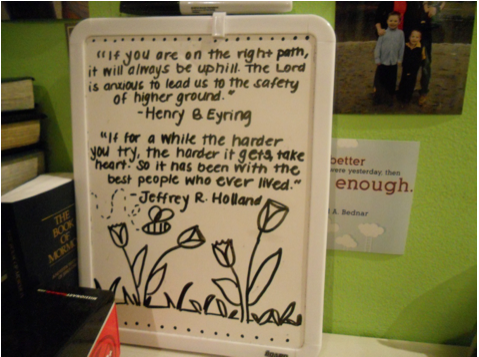 "If you are on the right path,
it will always be uphill. The Lord
is anxious to lead us to the safety
of higher ground."
-Henry B. Eyring
"If for a while the harder
you try, the harder it gets, take
heart. So it has been with the
best people who ever lived."
-Jeffrey R. Holland
THE
BOOK
OF
MORMON
better
were yesterday, then
enough.
A. Bednar